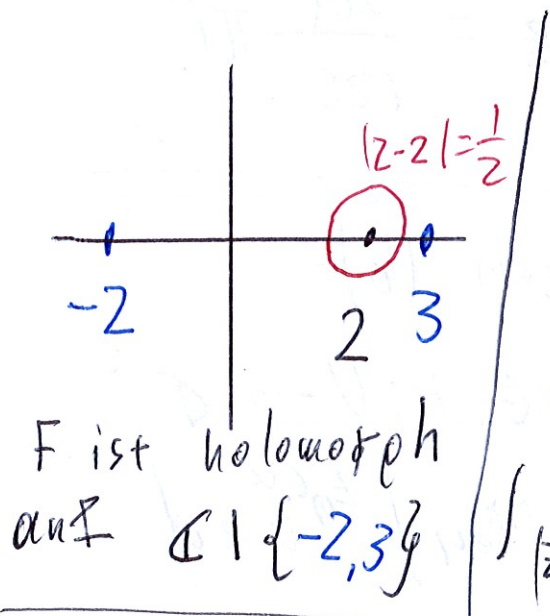 |z-2|=1/2
-2 2 3
F ist holomorph
auf ℂ \ {-2,3}
∫